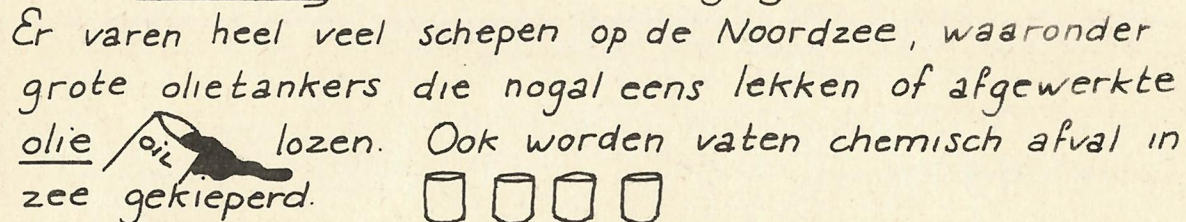 Er varen heel veel schepen op de Noordzee, waaronder
grote olietankers die nogal eens lekken of afgewerkte
olie OIL lozen. Ook worden vaten chemisch afval in
zee gekieperd.